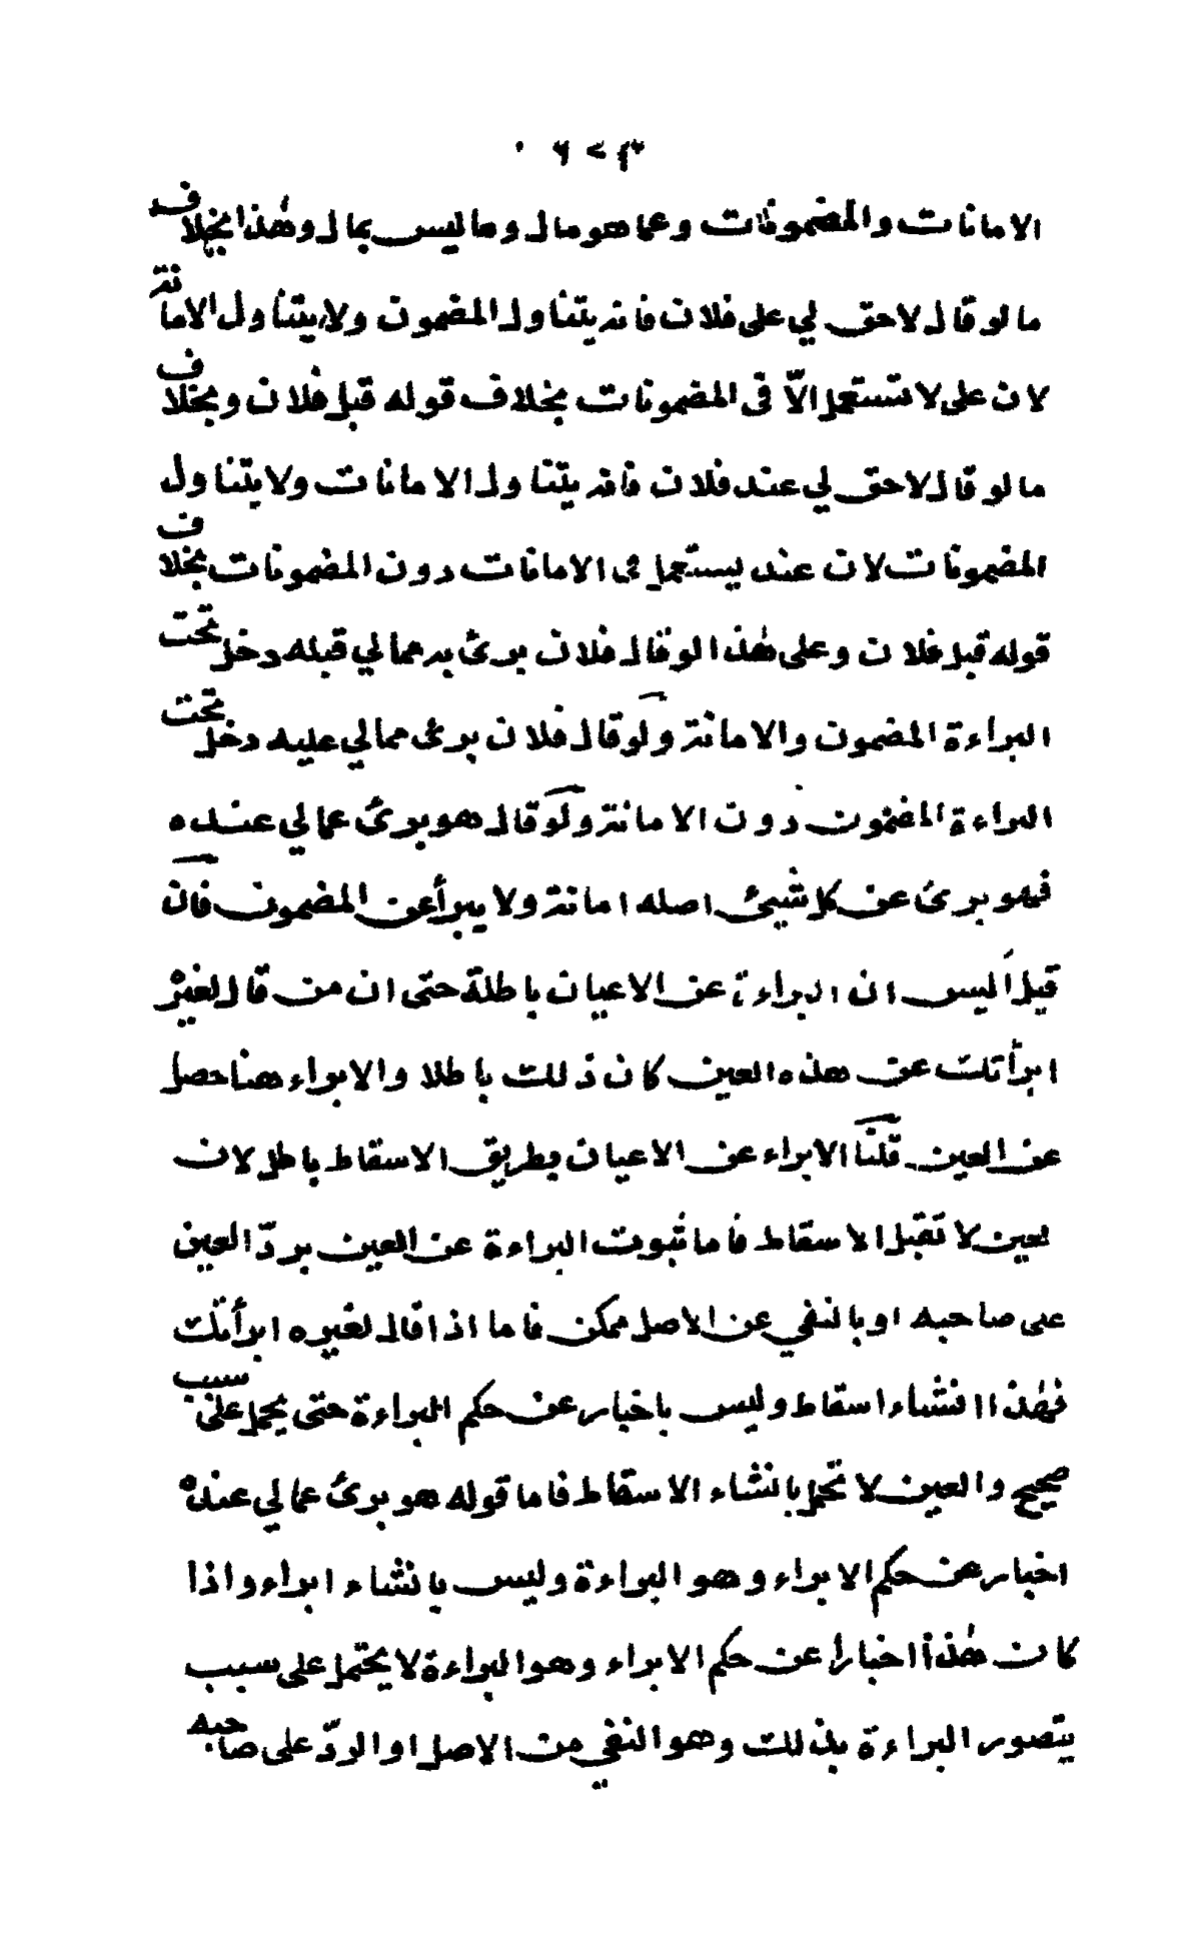 الامانات والمضمونات وعما هو مال وما ليس بمال وهذا بخلاف
ما لو قال لا حق لي على فلان فانه يتناول المضمون ولا يتناول الامانة
لان على لا تستعمل الّا في المضمونات بخلاف قوله قبل فلان وبخلاف
ما لو قال لا حق لي عند فلان فانه يتناول الامانات ولا يتناول
المضمونات لان عند يستعمل في الامانات دون المضمونات بخلاف
قوله قبل فلان وعلى هذا لو قال فلان برئ به عما لي قبله دخل تحت
البراءة المضمون والامانة ولو قال فلان برئ مما لي عليه دخل تحت
البراءة المضمون دون الامانة ولو قال هو برئ عما لي عنده
فهو برئ عن كل شيئ اصله امانة ولا يبرأ عن المضمون فان
قيل أليس ان البراءة عن الاعيان باطلة حتى ان من قال لغيره
ابرأتك عن هذه العين كان ذلك باطلا والابراء هنا حصل
عن العين قلنا الابراء عن الاعيان بطريق الاسقاط باطل لان
لعين لا تقبل الاسقاط فاما ثبوت البراءة عن العين بردّ العين
على صاحبه او بالنفي عن الاصل ممكن فاما اذا قال لغيره ابرأتك
فهذا انشاء اسقاط وليس باخبار عن حكم البراءة حتى يحمل على سبب
صحيح والعين لا تحمل بانشاء الاسقاط فاما قوله هو برئ عما لي عنده
اخبار عن حكم الابراء وهو البراءة وليس بانشاء ابراء واذا
كان هذا اخبارا عن حكم الابراء وهو البراءة لا يحتمل على سبب
يتصور البراءة بذلك وهو النفي من الاصل او الردّ على صاحبه